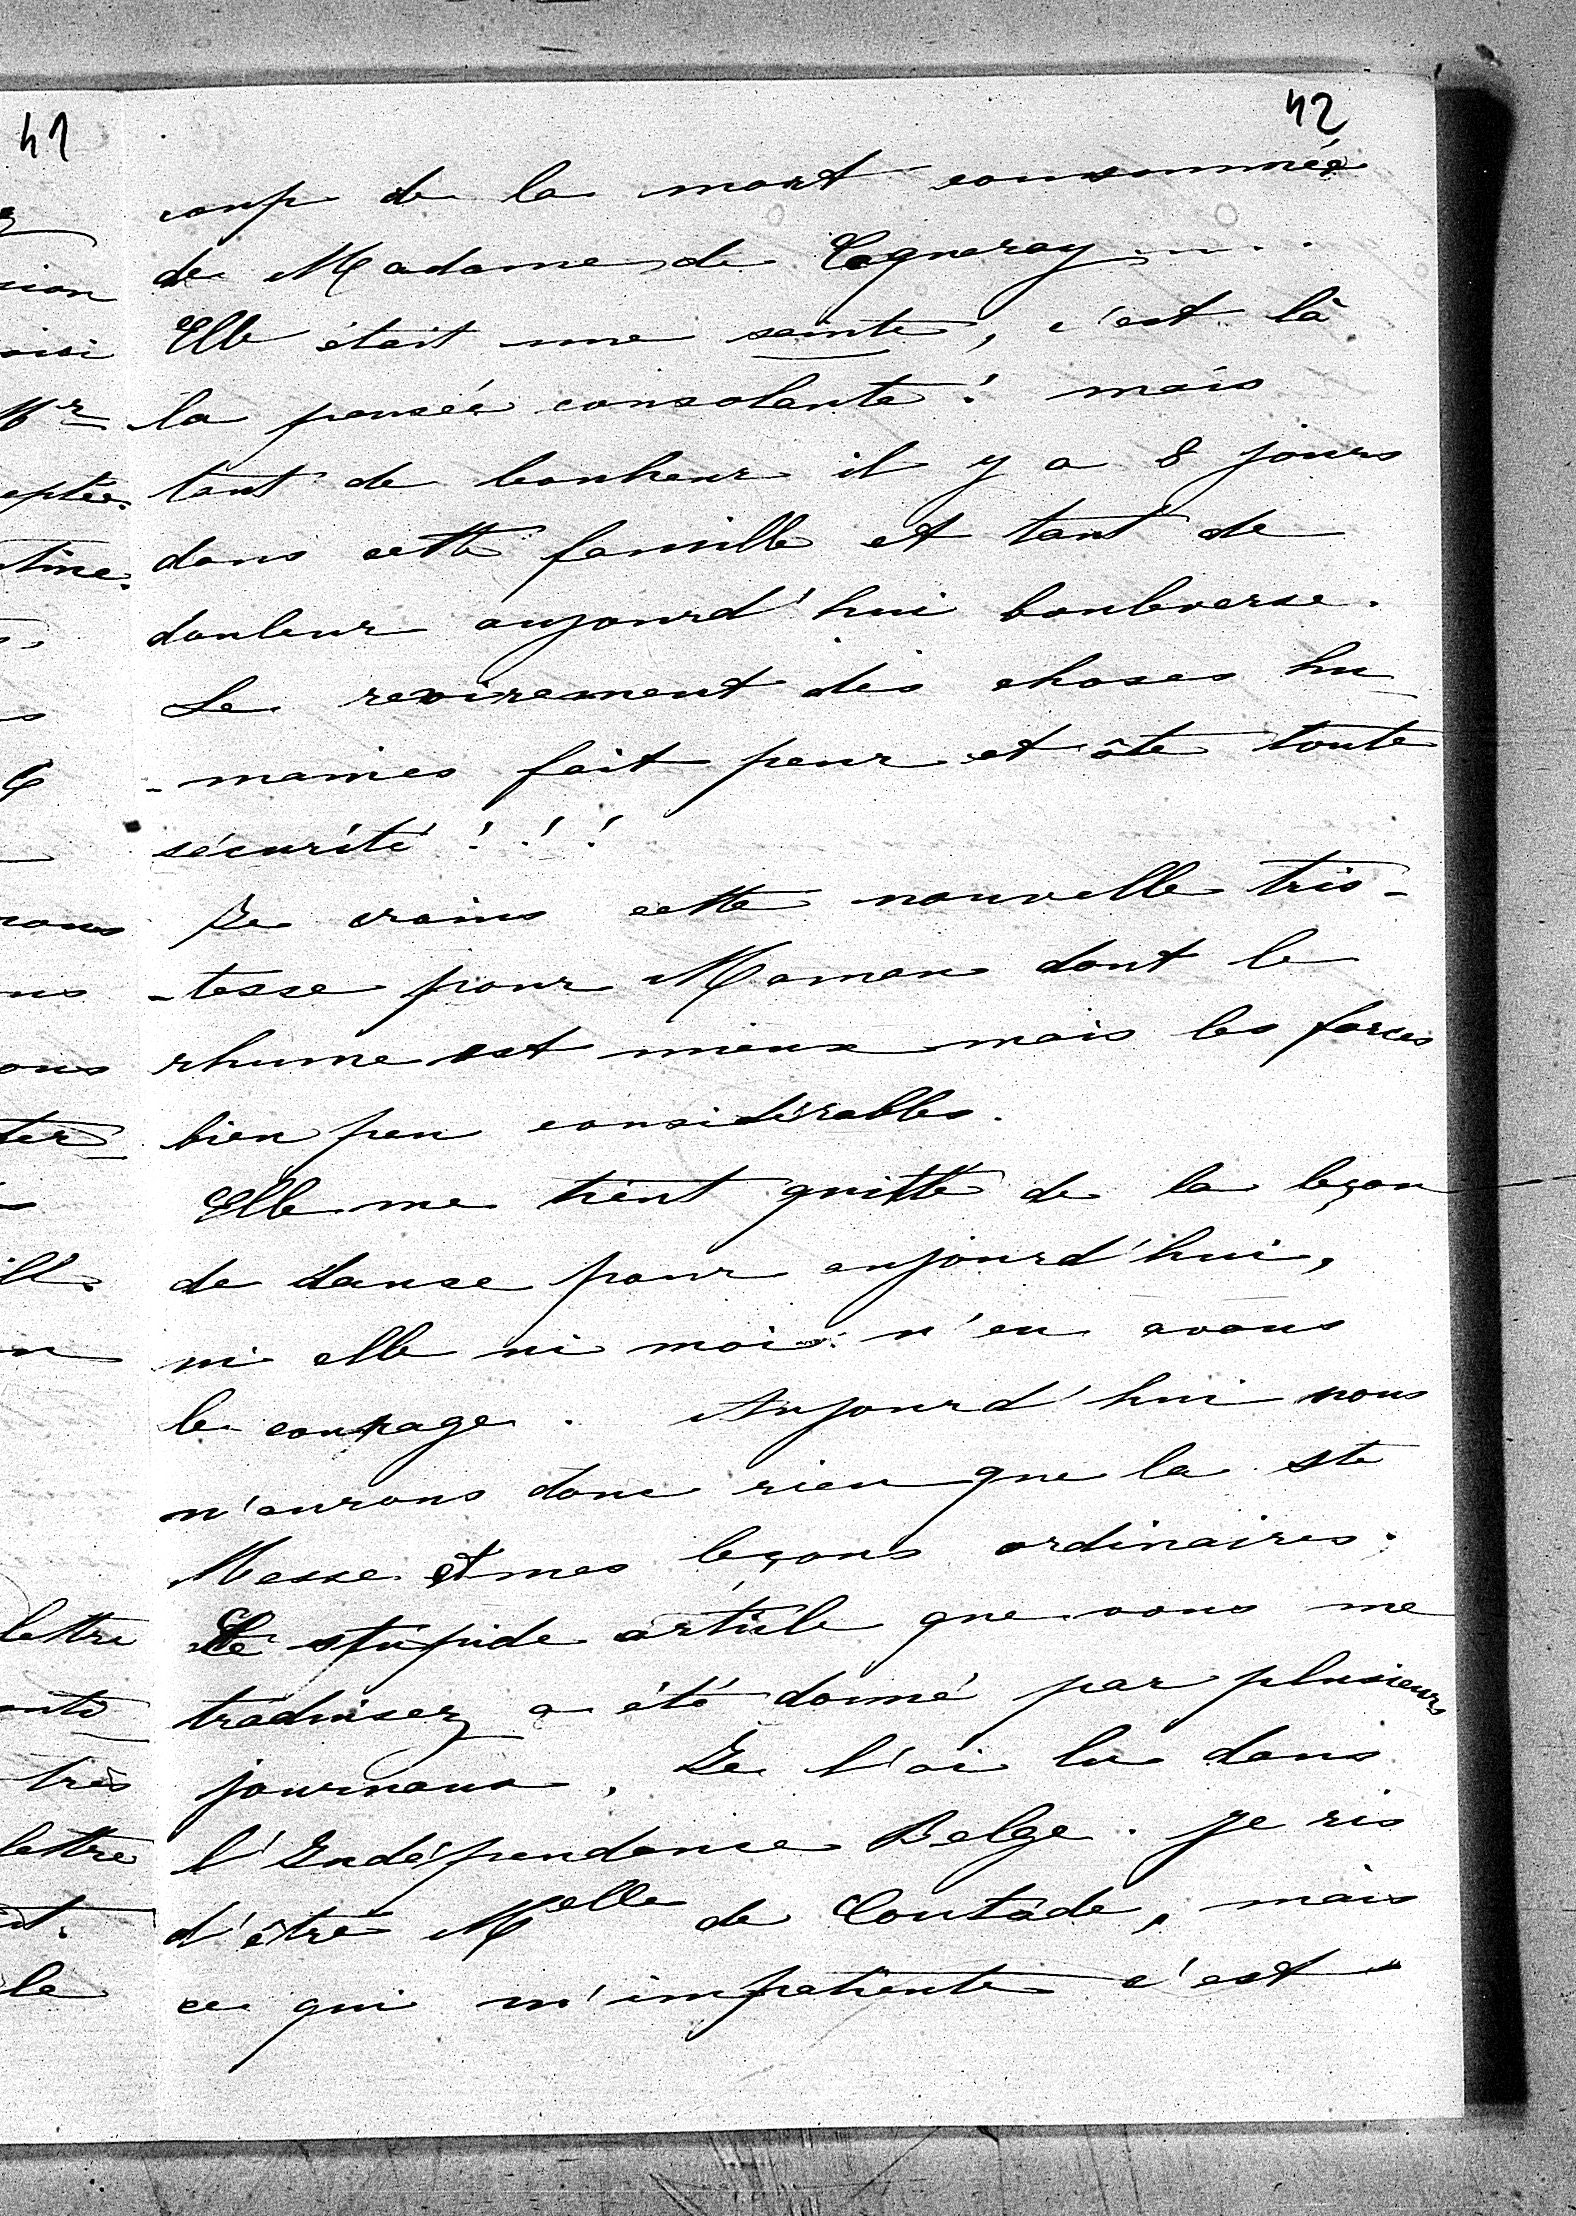 41
42
coup de la mort consommée
de Madame de Cogneray.....
Elle était une sainte, c'est là
la pensée consolante! mais
tant de bonheur il y a 8 jours
dans cette famille et tant de
douleur aujourd'hui bouleverse.
Le revirement des choses hu_
-maines fait peur et ôte toute
sécurité!!!
Je crains cette nouvelle tris-
-tesse pour Maman dont le
rhume est mieux mais les forces
bien peu considérables.
Elle me tient quitte de la leçon
de danse pour aujourd'hui,
ni elle ni moi n'en avons
le courage. Aujourd'hui nous
n'aurons donc rien que la ste
Messe et mes leçons ordinaires.
Le stupide article que vous me
traduisez a été donné par plusieurs
journaux. Je l'ai lu dans
l'Indépendance Belge. Je ris
d'être Melle de Coutade, mais
ce qui m'impatiente c'est